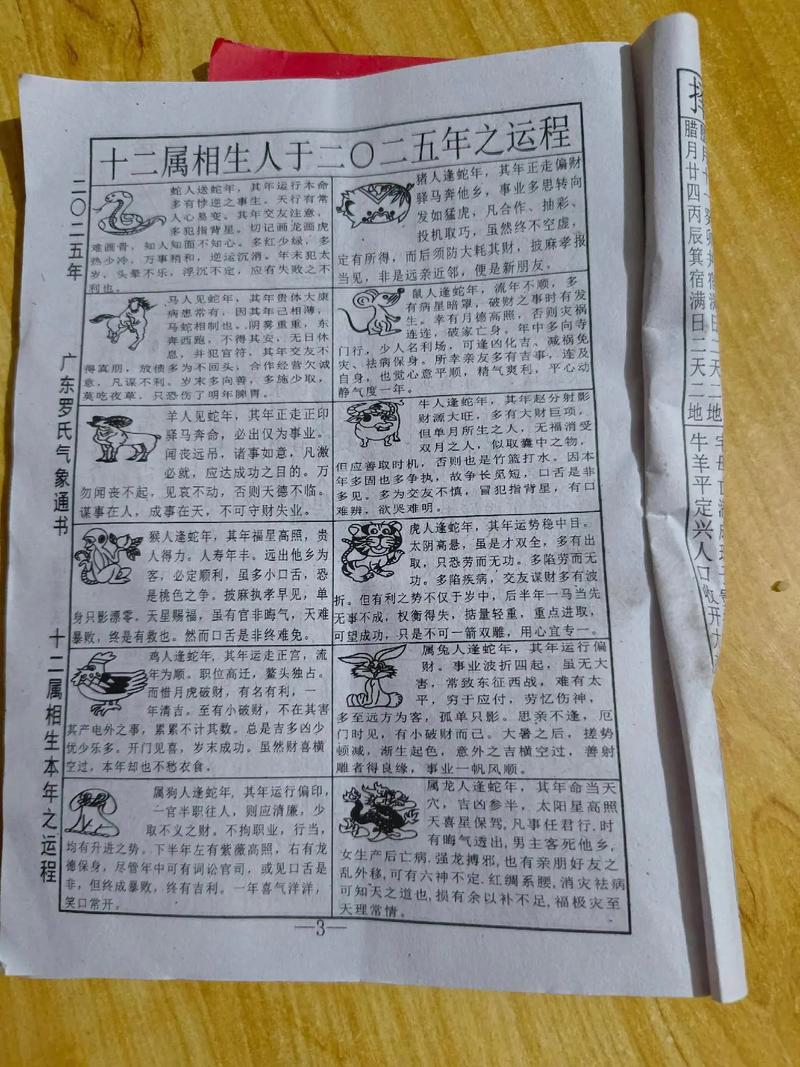 十二属相生人于二〇二五年之运程
二〇二五年
广东罗氏气象通书
十二属相生本年之运程
蛇人送蛇年，其年运行本命
多有悖逆之事生。天行有常
人心易变。其年交友注意，
多犯指背星。切记画龙画虎
难画骨，知人知面不知心。多红少绿，多
热少冷，万事精和，逆运沉消。年末犯太
岁、头晕不乐，浮沉不定，应有失败之不
利也。
马人见蛇年，其年贵体大康
病患常有，因其年己相薄，
马蛇相制也。阴雾重重，东
奔西跑，不得其安，无日休
息，并犯官符，其年交友不
得真朋，放债多为不回头，合作经营欠诚
意，凡谋不利。岁末多向善，多施少取，
莫吃夜草，只恐伤了明年脾胃。
羊人见蛇年，其年正走正印
驿马奔命，必出仅为事业。
闻丧远吊，诸事如意，凡激
必就，应达成功之目的。万
勿闻丧不起，见哀不动，否则天德不临。
谋事在人，成事在天，不可守财失业。
猴人逢蛇年，其年福星高照，贵
人得力。人寿年丰。远出他乡为
客，必定顺利，虽多小口舌，恐
是桃色之争。披麻执孝早见，单
身只影漂零。天星赐福，虽有官非晦气，天难
暴败，终是有救也。然而口舌是非终难免。
鸡人逢蛇年，其年运走正宫，流
年为顺。职位高迁，鳌头独占。
而惜月虎破财，有名有利，一
年清吉。至有小破财，不在其害
其产电外之事，累累不计其数。总是吉多凶少
优少乐多。开门见喜，岁末成功。虽然财喜横
空过，本年却也不愁衣食。
属狗人逢蛇年，其年运行偏印，
一官半职往人，则应清廉，少
取不义之财。不拘职业，行当，
均有升进之势。下半年左有紫薇高照，右有龙
德保身，尽管年中可有词讼官司，或见口舌是
非，但终成暴败，终有吉利。一年喜气洋洋，
笑口常开。
猪人逢蛇年，其年正走偏财
驿马奔他乡，事业多思转向
发如猛虎，凡合作、抽彩、
投机取巧，虽然终不空虚，
定有所得，而后须防大耗其财，披麻孝报
当见，非是远亲近邻，便是新朋友。
鼠人逢蛇年，流年不顺，多
有病星暗罩，破财之事时有发
生。幸有月德高照，否则灾祸
连连，破家亡身。年中多向寺
门行，少人名利场，可逢凶化吉、减祸免
灾、祛病保身。所幸亲友多有吉事，连及
自身，也觉心意平顺，精气爽利，平心动
静气度一年。
牛人逢蛇年，其年赵分射影
财源大旺，多有大财巨项，
但单月所生之人，无福消受
双月之人，似取囊中之物，
但应善取时机，否则也是竹篮打水。因本
年多固也多争执，故争长觅短，口舌是非
多见。多为交友不慎，冒犯指背星，有口
难辨，欲哭难明。
虎人逢蛇年，其年运势稳中目。
太阴高悬，虽是才双全，多有出
取，只恐劳而无功。多陷劳而无
功。多陷疾病，交友谋财多有波
折。但有利之势不仅于岁中，后半年一马当先
无事不成，权衡得失，掂量轻重，重点进取，
可望成功，只是不可一箭双雕，用心宜专一。
属兔人逢蛇年，其年运行偏
财。事业波折四起，虽无大
害，常致东征西战，难有太
平，穷于应付，劳忆伤神，
多至远方为客，孤单只影。思亲不逢，厄
门时见，有小破财而己。大暑之后，搓势
顿减，渐生起色，意外之吉横空过，善射
雕者得良缘，事业一帆风顺。
属龙人逢蛇年，其年命当天
穴，吉凶参半，太阳星高照
天喜星保驾，凡事任君行.时
有晦气透出，男主客死他乡，
女生产后亡病.强龙搏邪,也有亲朋好友之
乱外移,可有六神不定.红绸系腰,消灾祛病
可知天之道也,损有余以补不足,福极灾至
天理常情。
—3—
腊月廿四丙辰箕宿满日二天二地
牛羊平定兴人口收开